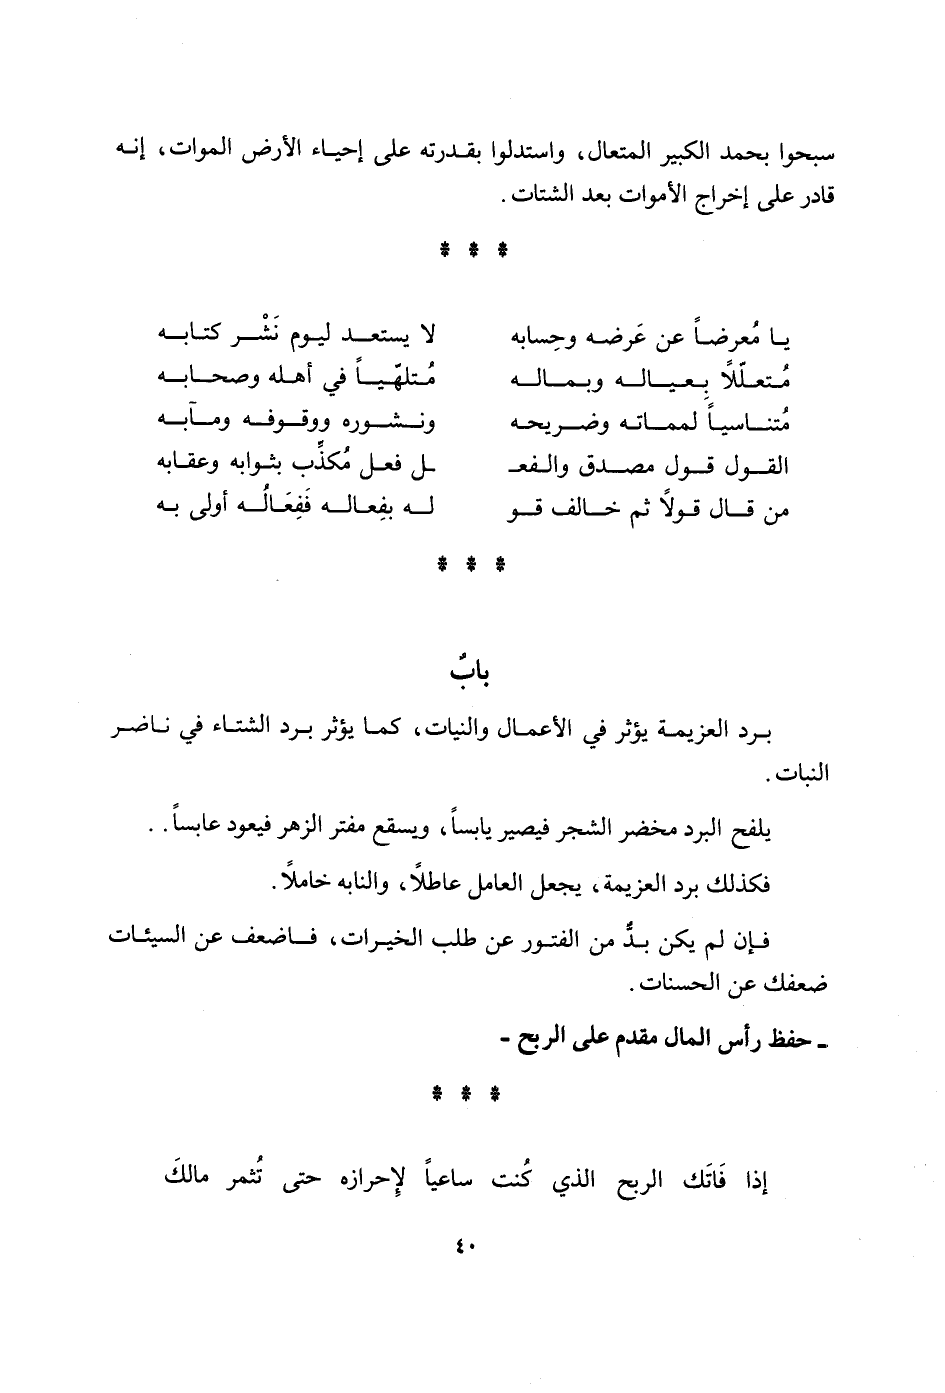 سبحوا بحمد الكبير المتعال، واستدلوا بقدرته على إحياء الأرض الموات، إنه
قادر على إخراج الأموات بعد الشتات.
* * *
يا مُعرضاً عن عَرضه وحِسابه لا يستعد ليوم نَشْر كتابه
مُتعلّلاً بِعياله وبماله مُتلهّياً في أهله وصحابه
مُتناسياً لمماته وضريحه ونشوره ووقوفه ومآبه
القول قول مصدق والفعـ ـل فعل مُكذِّب بثوابه وعقابه
من قال قولاً ثم خالف قو له بفِعاله فَفِعَالُه أولى به
* * *
بابٌ
برد العزيمة يؤثر في الأعمال والنيات، كما يؤثر برد الشتاء في ناضر
النبات.
يلفح البرد مخضر الشجر فيصير يابساً، ويسقع مفتر الزهر فيعود عابساً..
فكذلك برد العزيمة، يجعل العامل عاطلاً، والنابه خاملاً.
فإن لم يكن بدٌّ من الفتور عن طلب الخيرات، فاضعف عن السيئات
ضعفك عن الحسنات.
ـ حفظ رأس المال مقدم على الربح ـ
* * *
إذا فَاتَك الربح الذي كُنت ساعياً لإِحرازه حتى تُثمر مالكَ
٤٠